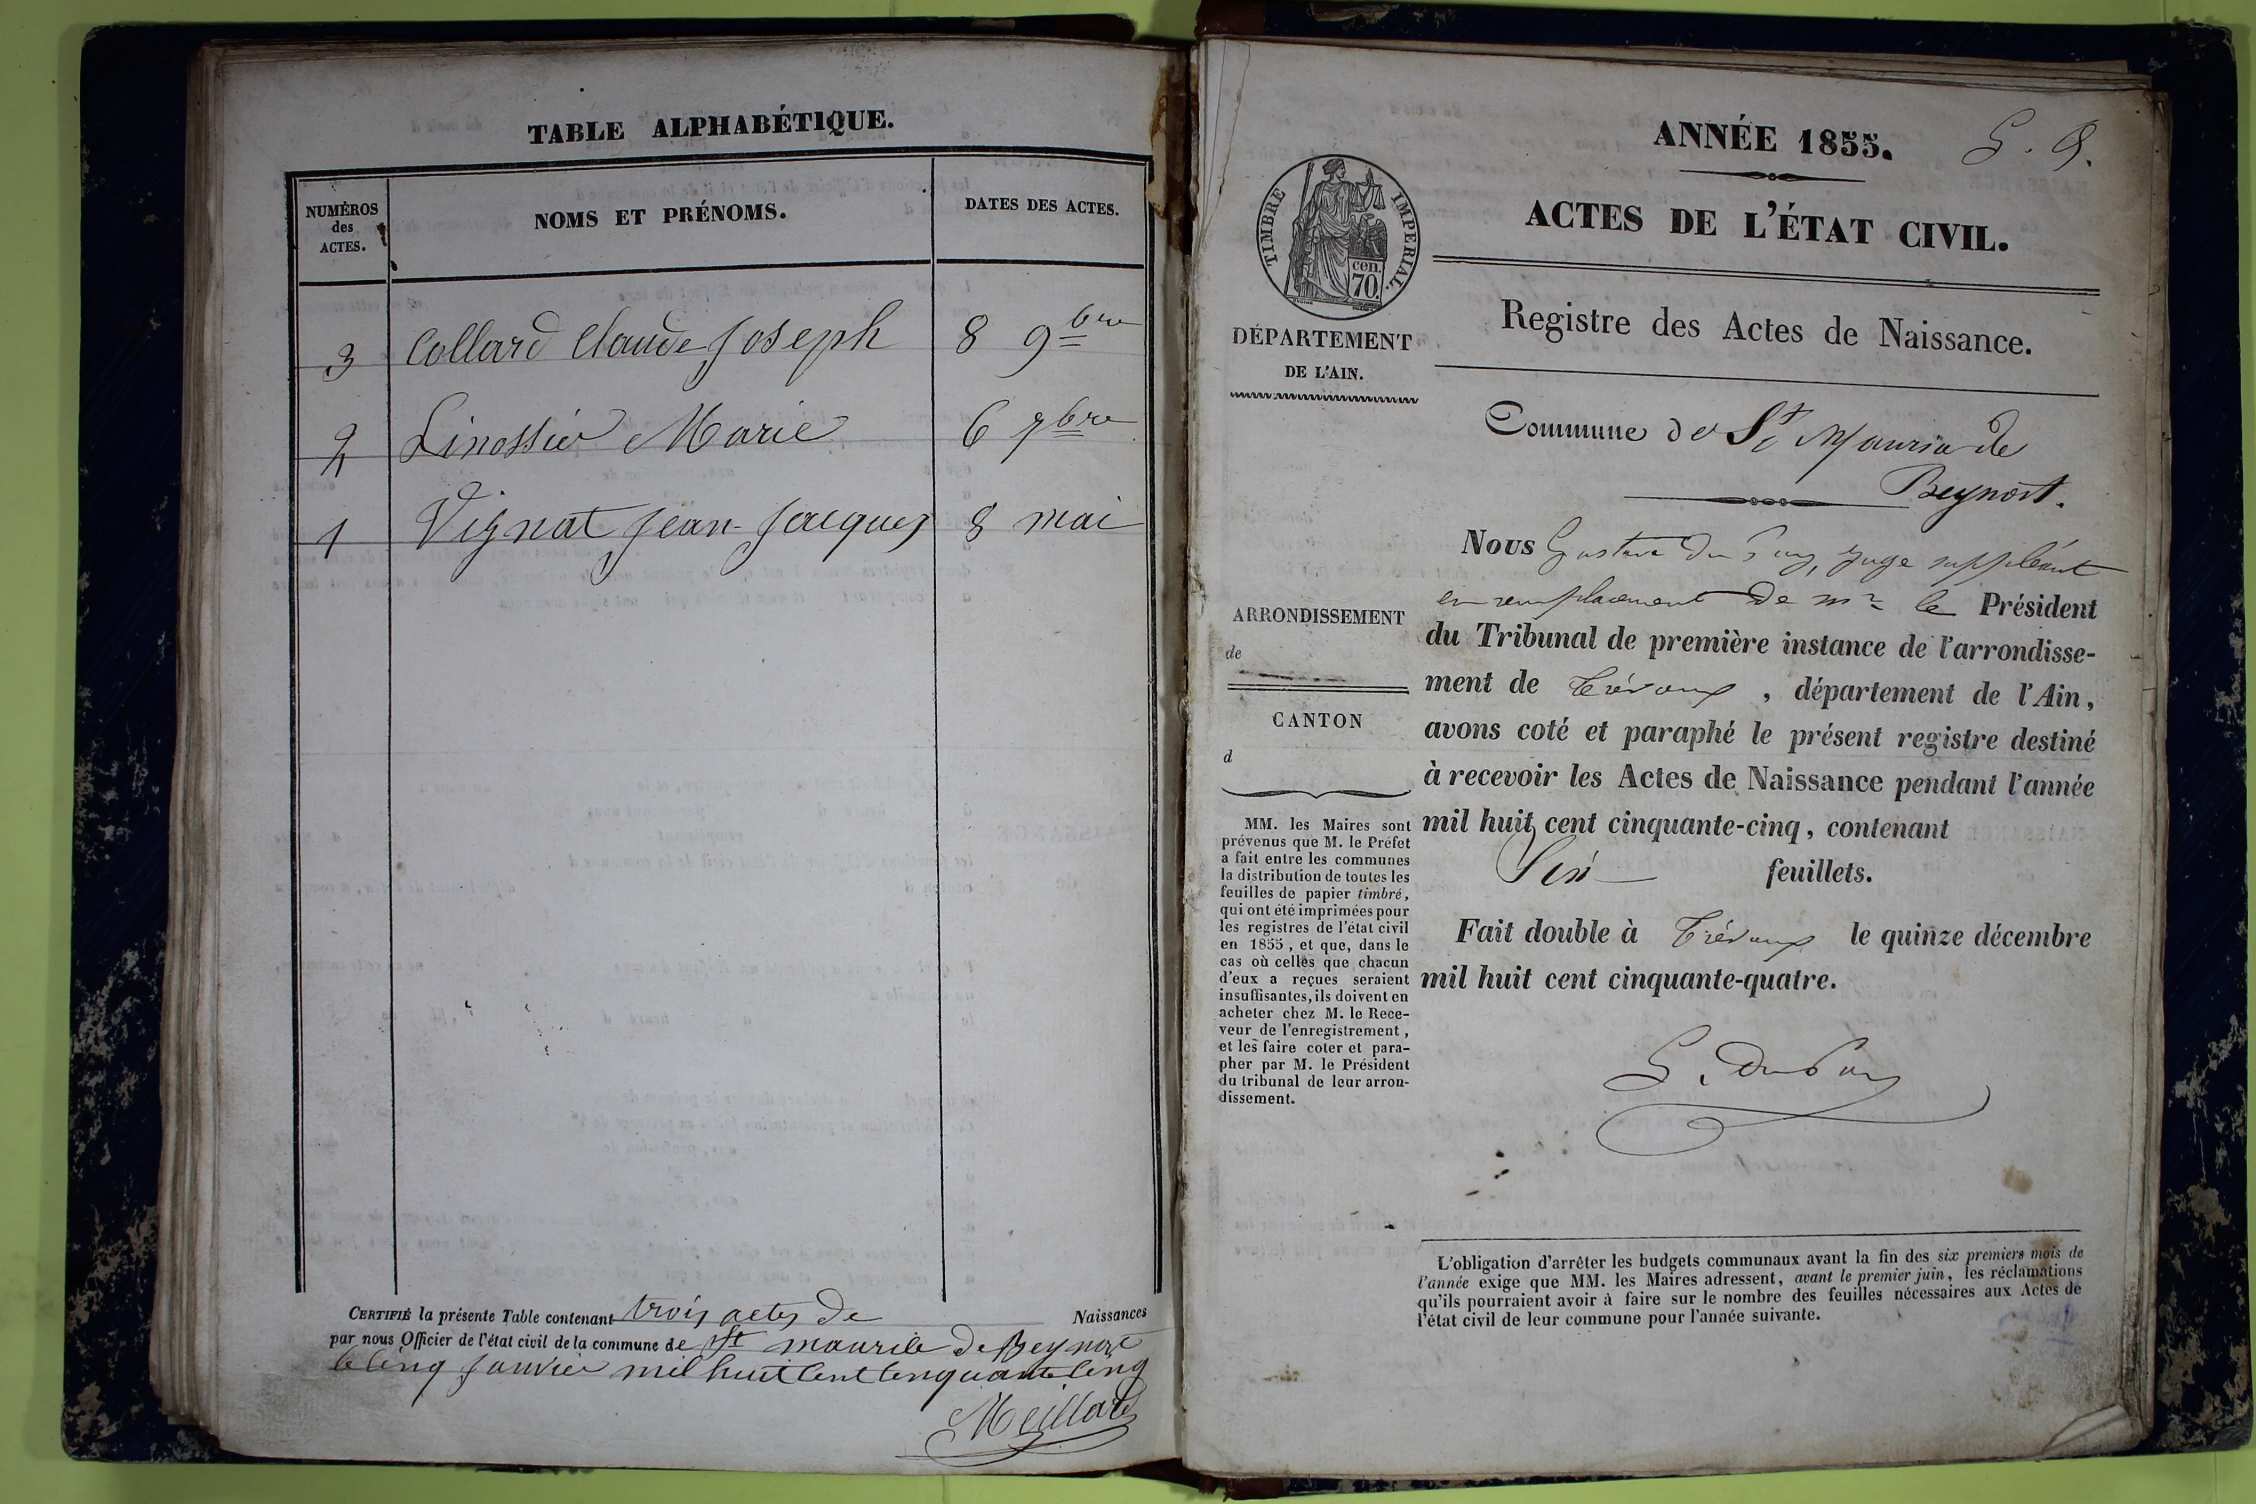 TABLE ALPHABÉTIQUE.
NUMÉROS
des
ACTES.
NOMS ET PRÉNOMS.
DATES DES ACTES.
3 Collard Claude Joseph 8 9bre
2 Linossier Marie 6 7bre
1 Vignat Jean-Jacques 8 mai
CERTIFIÉ la présente Table contenant trois actes de Naissances
par nous Officier de l'état civil de la commune de St maurice de Beynost
le cinq Janvier mil huit cent cinquante cinq
Meillard
ANNÉE 1855.
ACTES DE L'ÉTAT CIVIL.
TIMBRE IMPERIAL.
cen.
70.
DÉPARTEMENT
DE L'AIN.
Registre des Actes de Naissance.
Commune de St Maurice de
Beynost.
ARRONDISSEMENT
de
CANTON
d
MM. les Maires sont
prévenus que M. le Préfet
a fait entre les communes
la distribution de toutes les
feuilles de papier timbré,
qui ont été imprimées pour
les registres de l'état civil
en 1855, et que, dans le
cas où celles que chacun
d'eux a reçues seraient
insuffisantes, ils doivent en
acheter chez M. le Rece-
veur de l'enregistrement,
et les faire coter et para-
pher par M. le Président
du tribunal de leur arron-
dissement.
Nous Gustave Du Puy, Juge suppléant
en remplacement de mr le Président
du Tribunal de première instance de l'arrondisse-
ment de Trévoux, département de l'Ain,
avons coté et paraphé le présent registre destiné
à recevoir les Actes de Naissance pendant l'année
mil huit cent cinquante-cinq, contenant
Six feuillets.
Fait double à Trévoux le quinze décembre
mil huit cent cinquante-quatre.
G. DuPuy
L'obligation d'arrêter les budgets communaux avant la fin des six premiers mois de
l'année exige que MM. les Maires adressent, avant le premier juin, les réclamations
qu'ils pourraient avoir à faire sur le nombre des feuilles nécessaires aux Actes de
l'état civil de leur commune pour l'année suivante.